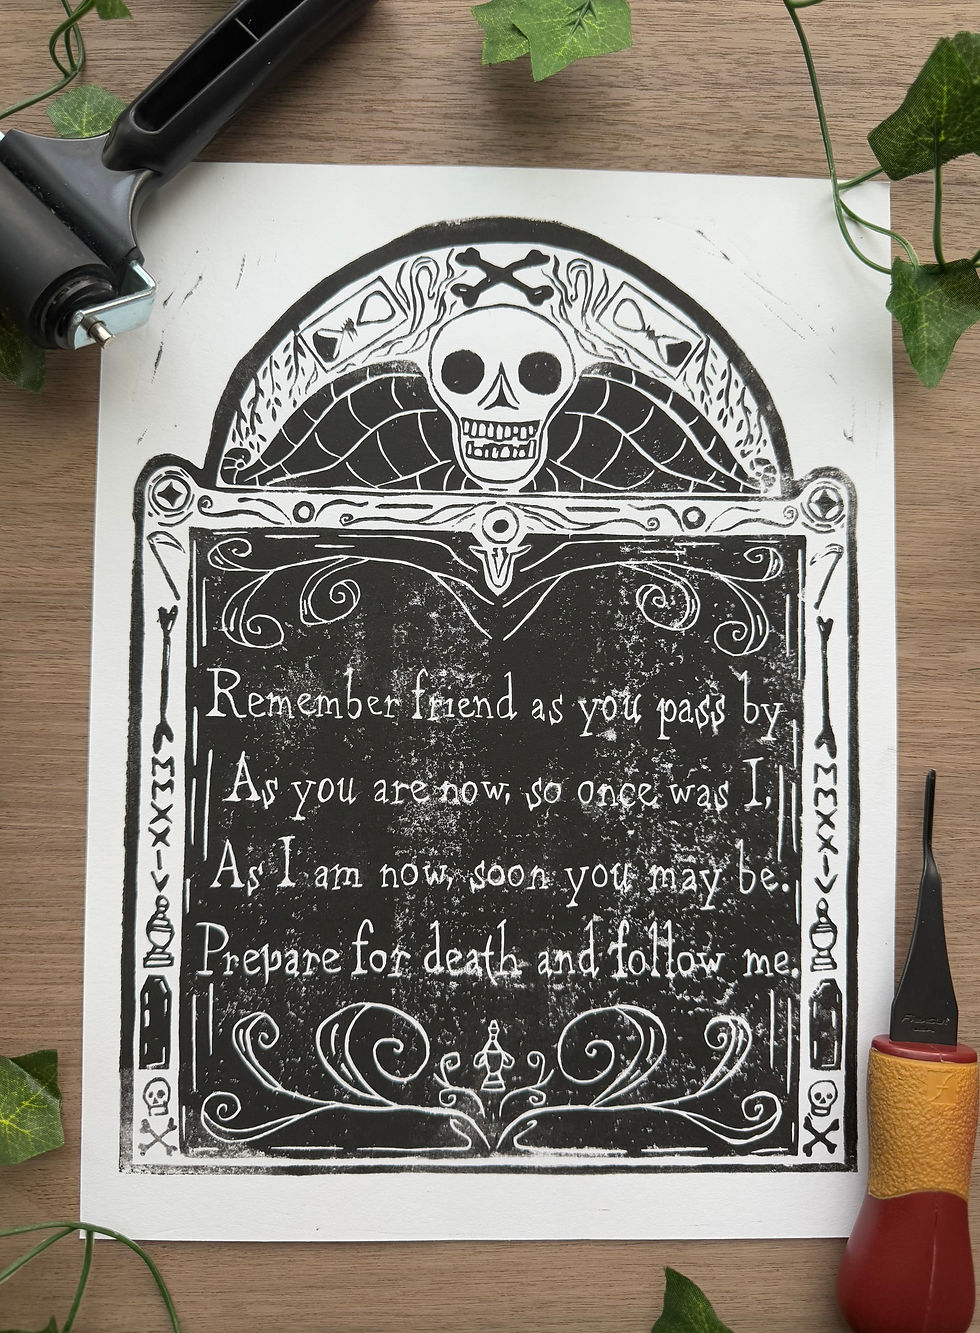 Remember friend as you pass by
As you are now, so once was I,
As I am now, soon you may be.
Prepare for death and follow me.
MMXXIV
MMXXIV